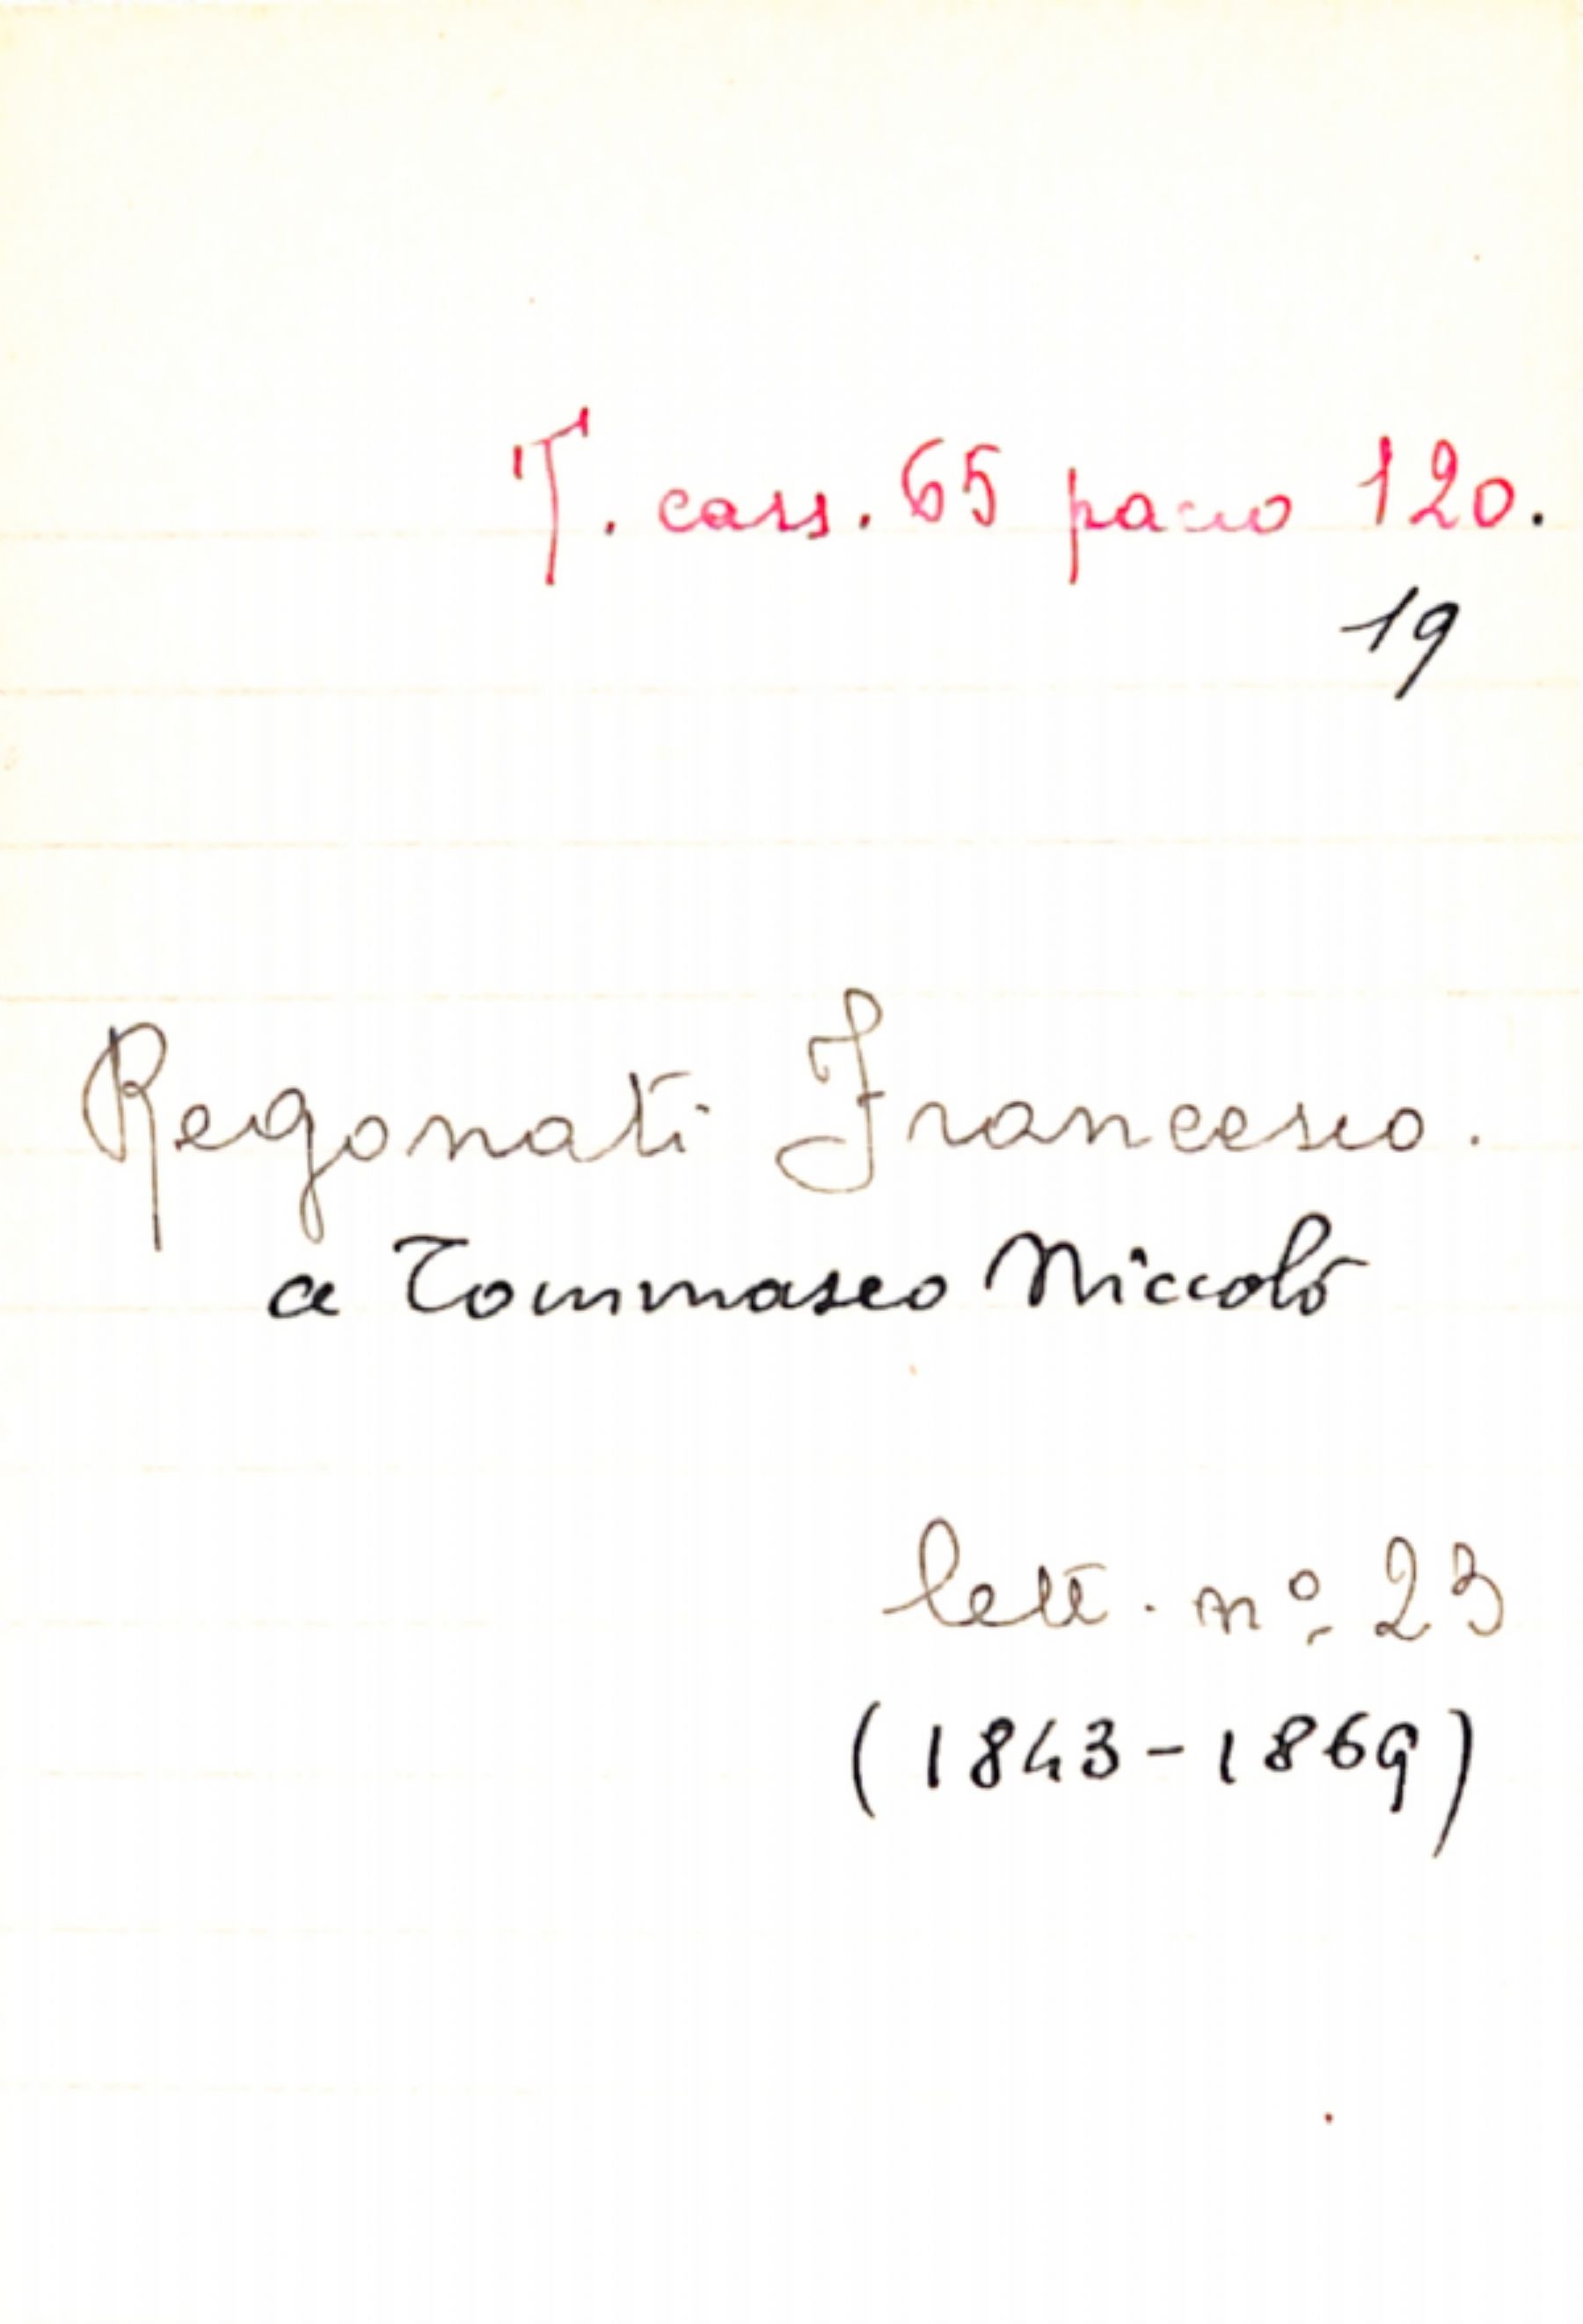 T. cass. 65 pacco 120.
19
Regonati Francesco.
a Tommaseo Niccolò
lett. nº 23
(1843-1869)